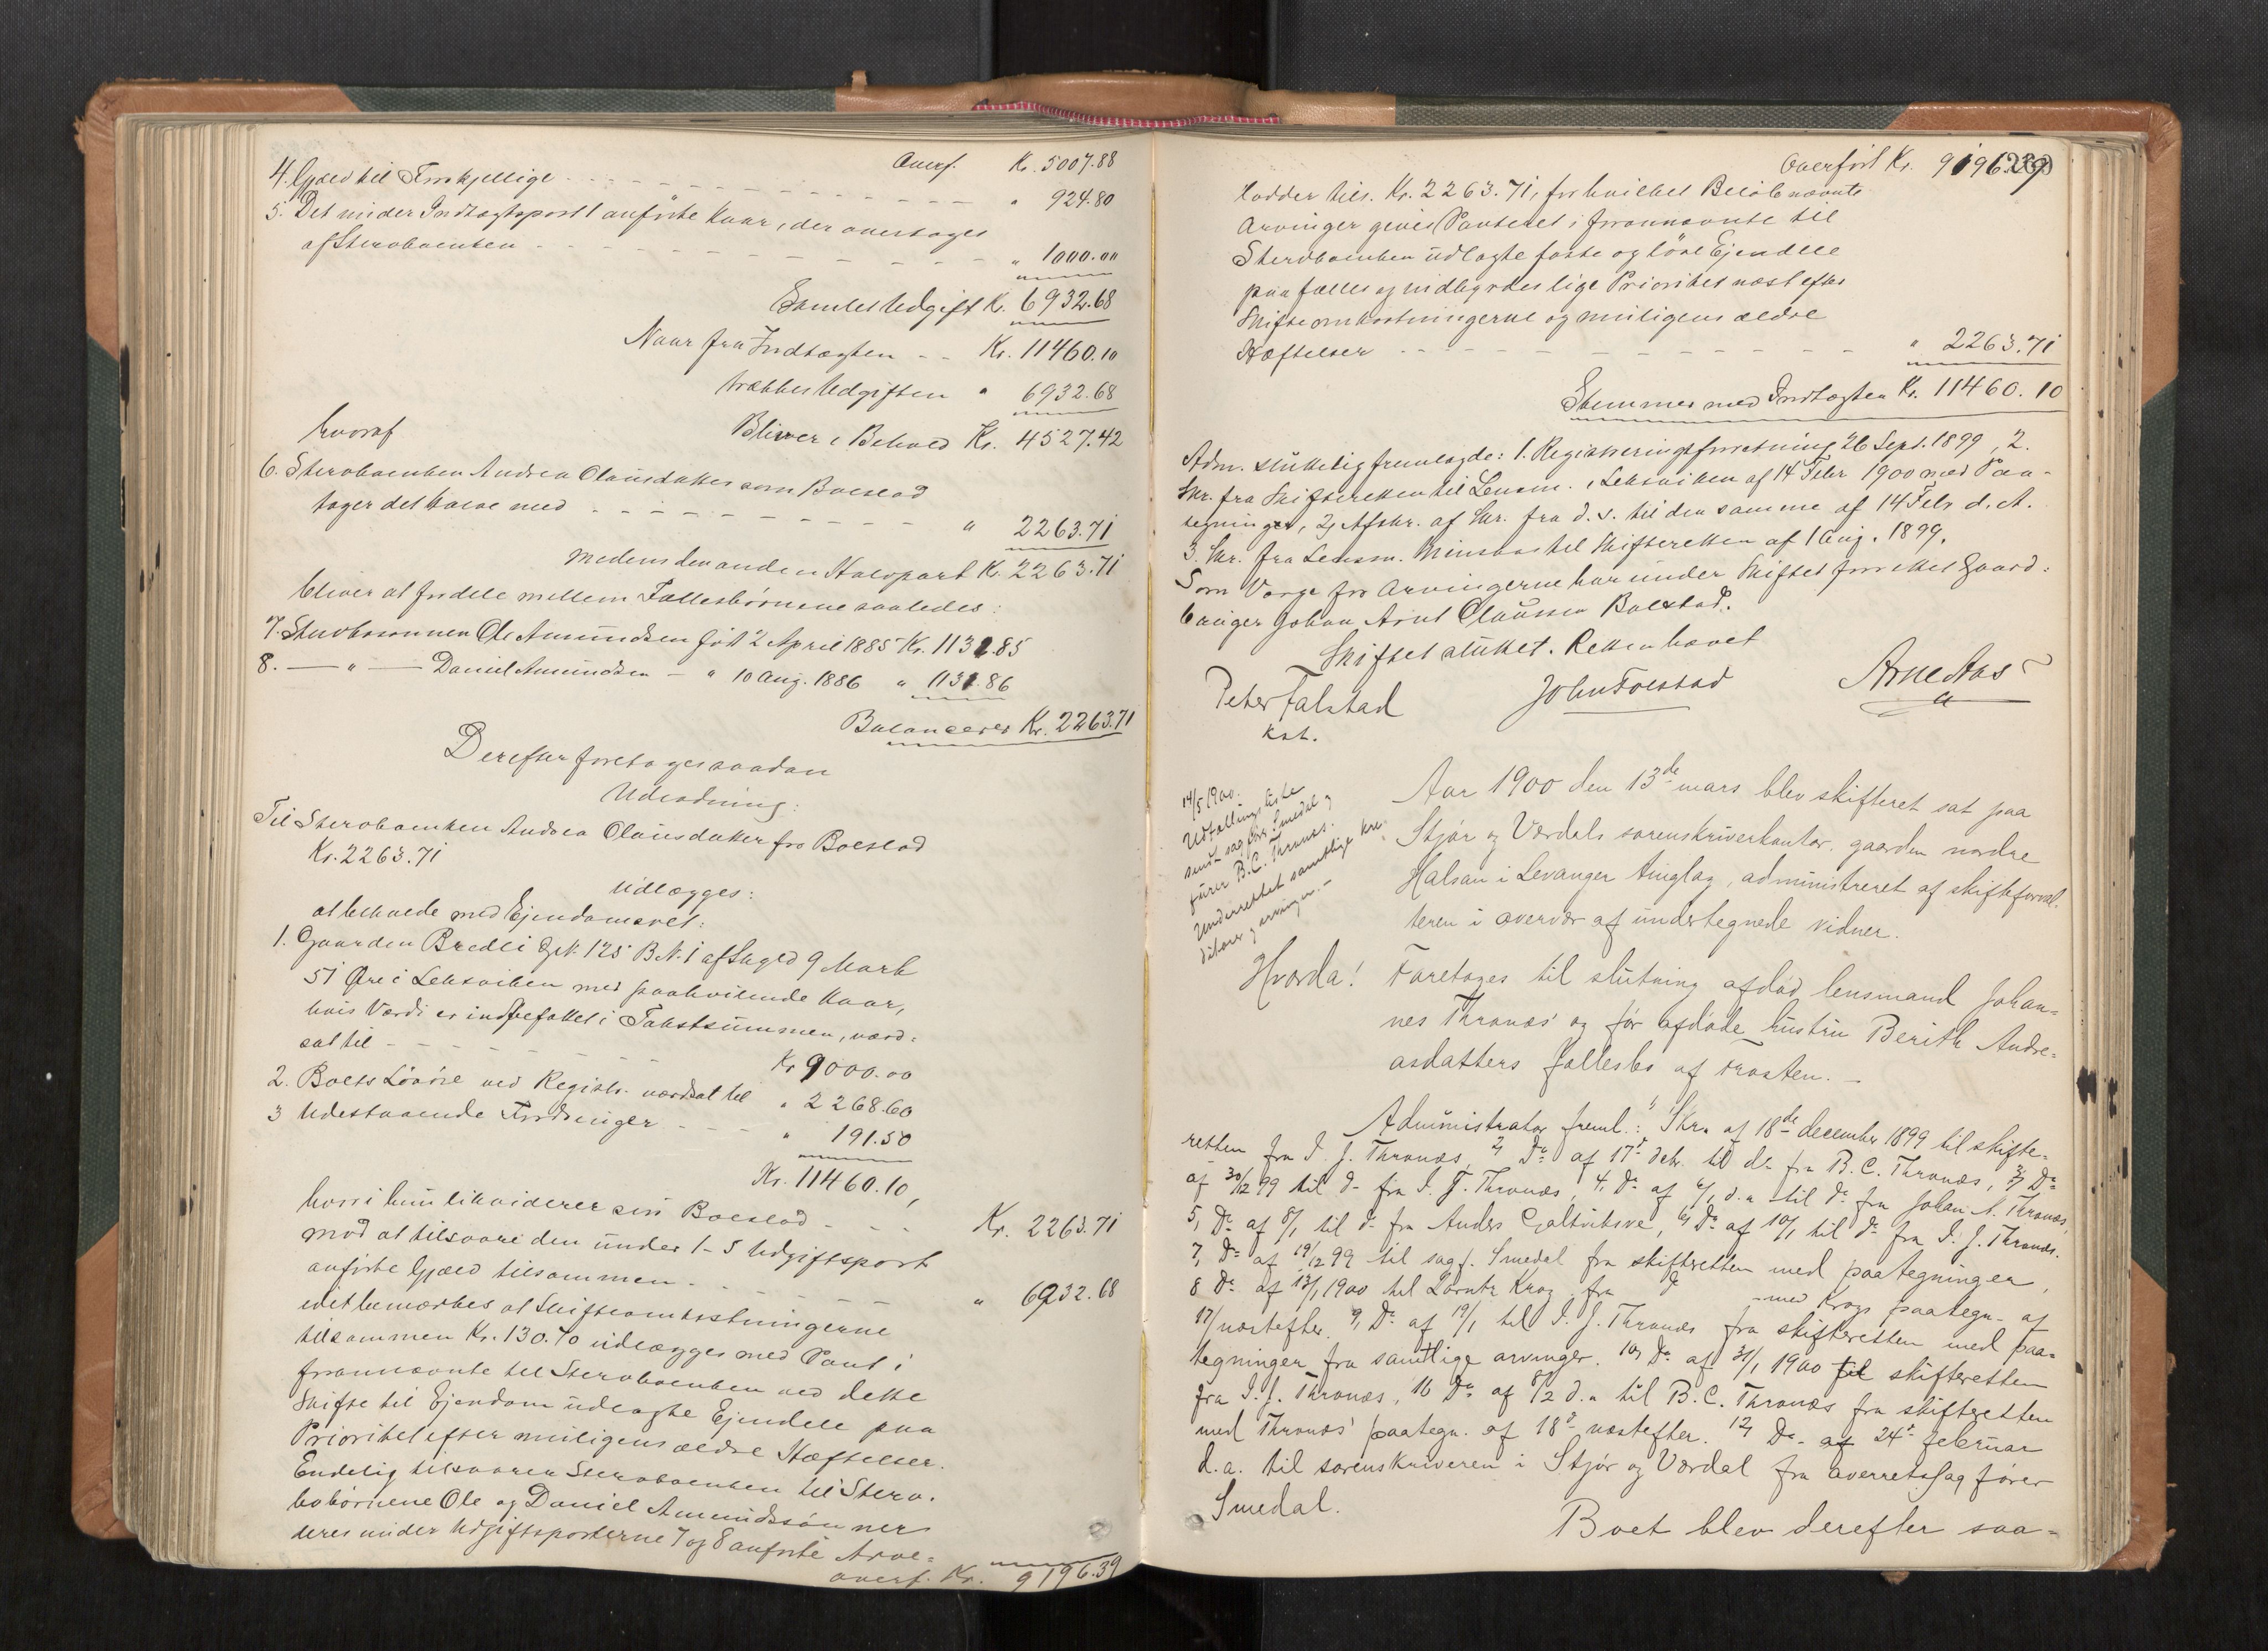 Overf. Kr. 5007.88
4. Gjæld til Forskjellige " 924.80
5. Det under Indtægtspost 1 anførte Kaar, der overtages
af Stervboenken " 1000.00
Samlet Udgift Kr. 6932.68
Naar fra Indtægten Kr. 11460.10
trækkes Udgiften " 6932.68
Bliver i Behold Kr. 4527.42
hvoraf
6. Stervboenken Andrea Olausdatter som Boeslod
tager det halve med " 2263.71
medens den anden Halvpart Kr. 2263.71
bliver at fordele mellem Fællesbørnene saaledes:
7. Stervbosønnen Ole Amundsen født 2 April 1885 Kr. 1131.85
8. — " — Daniel Amundsen — " 10 Aug. 1886 " 1131.86
Balancerer Kr. 2263.71
Derefter foretages saadan
Udlodning:
Til Stervboenken Andrea Olausdatter for Boeslod
Kr. 2263.71
udlægges:
at beholde med Ejendomsret:
1. Gaarden Bredli G.N. 125 B.N. 1 af Skyld 9 Mark
51 Øre i Leksviken med paahvilende Kaar,
hvis Værdi er indbefattet i Takstsummen, værd=
sat til Kr. 9000.00
2. Boets Løsøre ved Registr. værdsat til " 2268.60
3 Udestaaende Fordringer " 191.50
Kr. 11460.10,
hvori hun likviderer sin Boeslod Kr. 2263.71
mod at tilsvare den under 1-5 Udgiftspost
anførte Gjæld tilsammen " 6932.68
idet bemærkes at Skifteomkostningerne
tilsammen Kr. 130.70 udlægges med Pant i
forannævnte til Stervboenken ved dette
Skifte til Ejendom udlagte Ejendele paa
Prioritet efter muligens ældre Hæftelser.
Endelig tilsvarer Stervboenken til Sterv-
bobørnene Ole og Daniel Amundssønner
deres under Udgiftsposterne 7 og 8 anførte Arve=
overf. Kr. 9196.39
Overført Kr. 9196.39
lodder tils. Kr. 2263.71, for hvilket Beløb nævnte
Arvinger gives Panteret i forannævnte til
Stervboenken udlagte faste og løse Ejendele
paa fælles og indbyrdes lige Prioritet næst efter
Skifteomkostningerne og muligens ældre
Hæftelser " 2263.71
Stemmer med Indtægten Kr. 11460.10
Adm. sluttelig fremlagde: 1. Registreringsforretning 26 Sept. 1899, 2.
Skr. fra Skifteretten til Lensm. i Leksviken af 14 Febr 1900 med Paa-
tegninger, 2) Afskr. af Skr. fra d. s. til den samme af 14 Febr d. A.
3. Skr. fra Lensm. Minsaas til Skifteretten af 1 Aug. 1899.
Som Værge for Arvingerne har under Skiftet forrettet Gaard=
bruger Johan Arnt Olaussen Bolstad.
Skiftet sluttet. Retten hævet
Peter Falstad
kst.
John Folstad
Arne Aas
14/5 1900.
Udfallingsliste
sendt sagfører Smedal og
fører B.C. Thronæs.
Underrettet samtlige kre-
ditorer og arvinger.–
Aar 1900 den 13de mars blev skifteret sat paa
Stjør og Værdals sorenskriverkontor, gaarden nordre
Halsan i Levanger tinglag, administreret af skifteforval-
teren i overvær af undertegnede vidner.
Hvorda! Foretoges til slutning afdød lensmand Johan-
nes Thronæs' og før afdøde hustru Berith Andre=
asdatters fællesbo af Frosten. –
Administrator freml.: 1) Skr. af 18de december 1899 til skifte-
retten fra I. J. Thronæs, 2) Do af 17de debr. til do fra B. C. Thronæs, 3) Do
af 30/12 99 til do fra I. J. Thronæs, 4, Do af 4/1 d. a. til do fra Johan N. Thronæs,
5, Do af 8/1 til do fra Anders Galtvitsve, 6) Do af 10/1 til do fra I. J. Thronæs.
7, Do af 19/12 99 til sagf. Smedal fra skifteretten med paategninger,
8 Do af 13/1 1900 til Lorntz Krog fra do med Krogs paategn. af
17/ næstefter. 9, Do af 19/1 til I. J. Thronæs fra skifteretten med paa=
tegninger fra samtlige arvinger. 10) Do af 31/1 1900 til skifteretten
fra I. J. Thronæs, 11) Do af 8/2 d. a til B. C. Thronæs fra skifteretten
med Thronæs' paategn. af 18de næstefter. 12) Do af 24de februar
d. a. til sorenskriveren i Stjør og Værdal fra overretssagfører
Smedal.
Boet blev derefter saa-